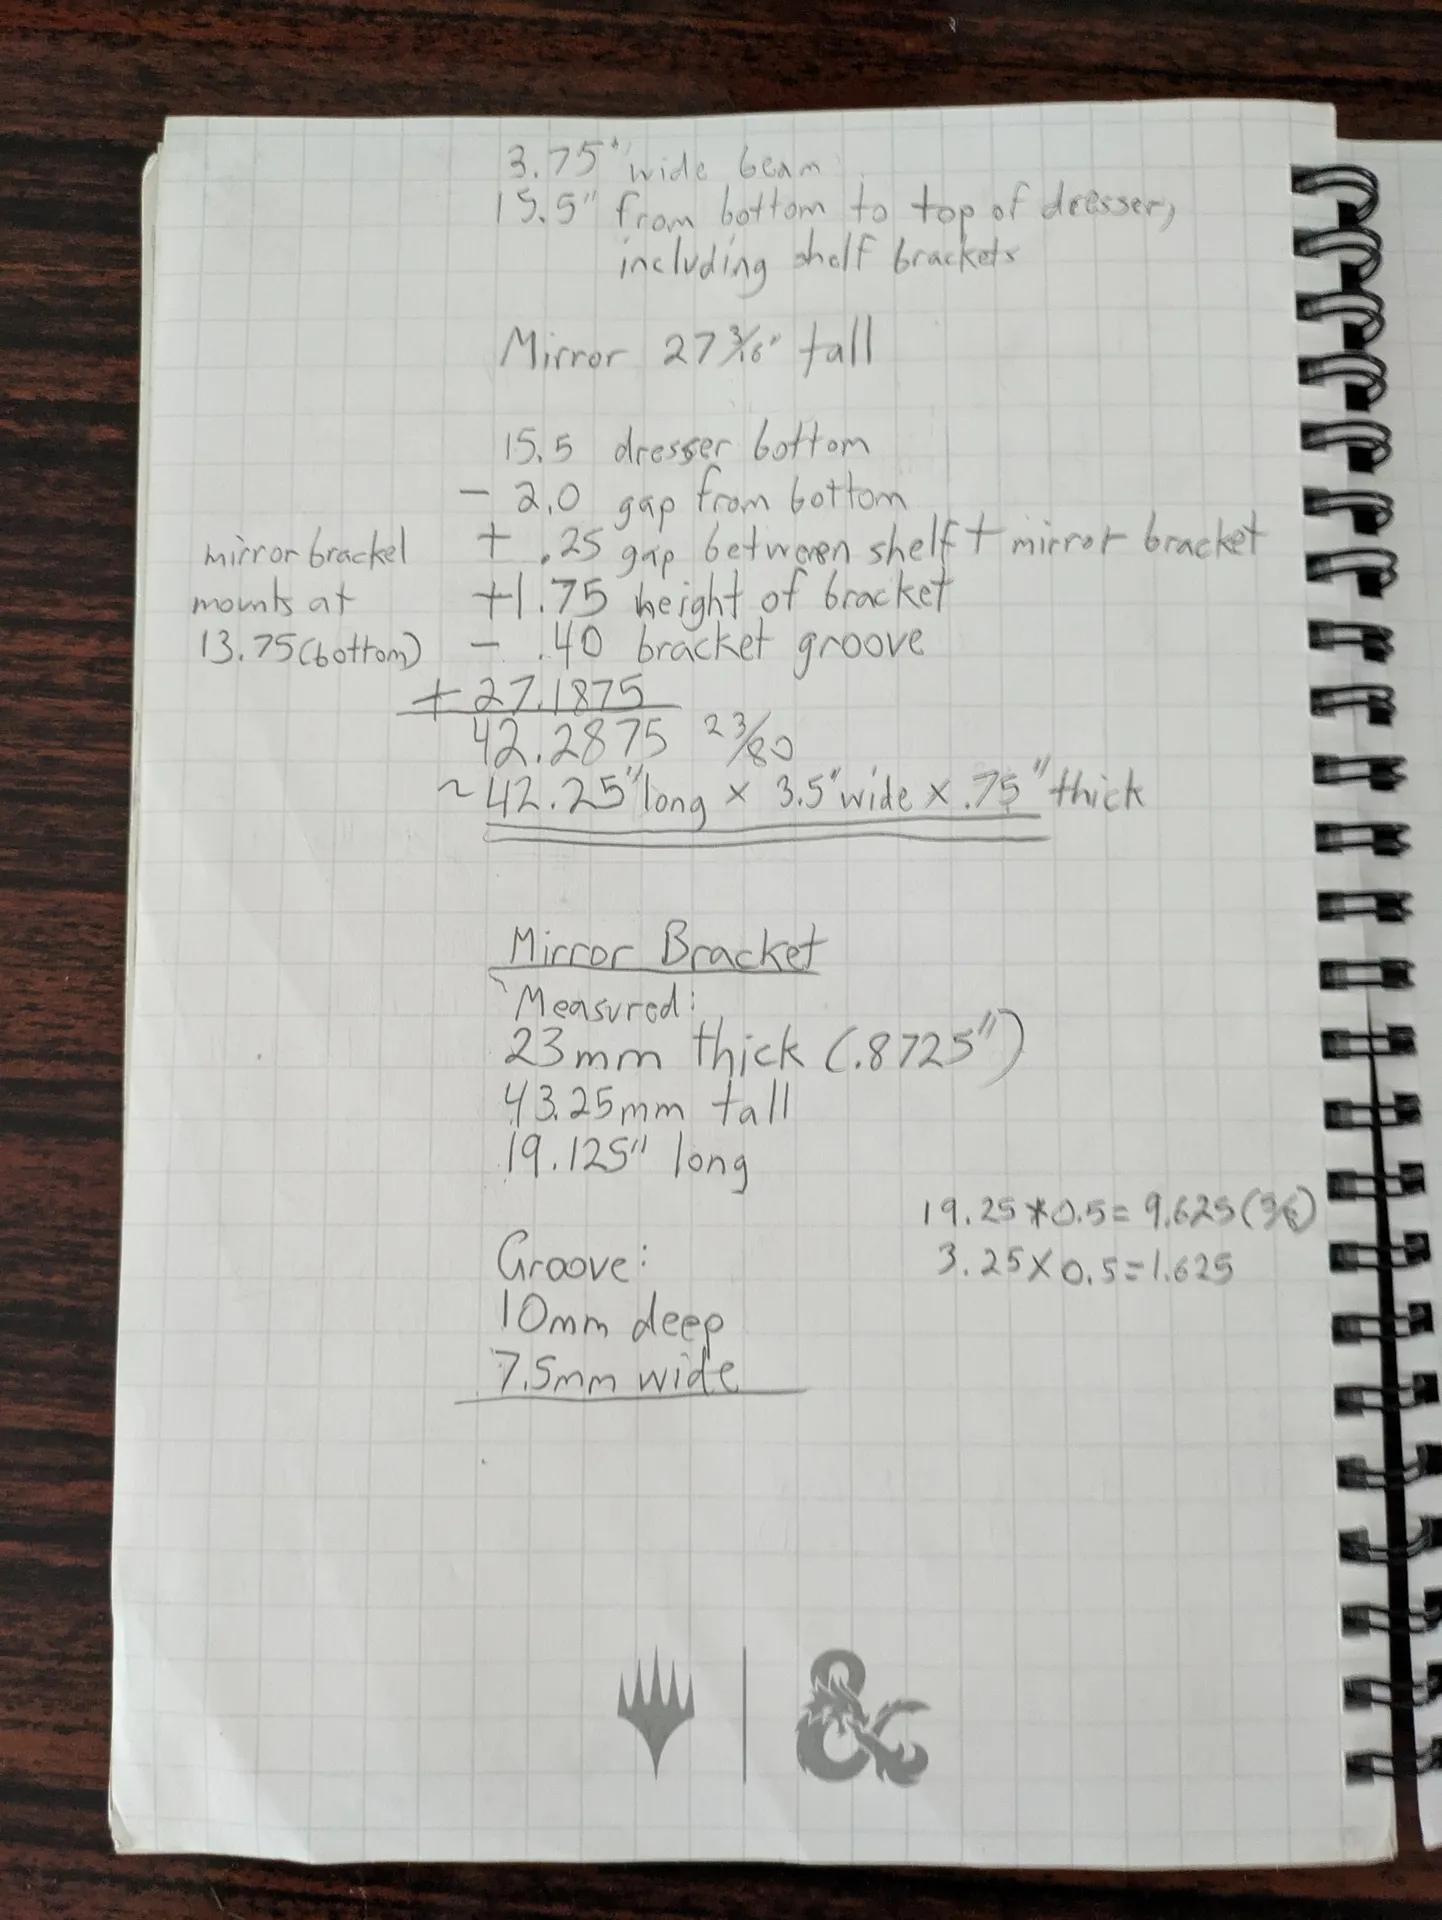 3.75" wide beam
15.5" from bottom to top of dresser,
including shelf brackets
Mirror 27 3/16" tall
15.5 dresser bottom
- 2.0 gap from bottom
+ .25 gap between shelf + mirror bracket
+1.75 height of bracket
- .40 bracket groove
+ 27.1875
42.2875 23/80
~42.25" long x 3.5" wide x .75" thick
mirror bracket
mounts at
13.75 (bottom)
Mirror Bracket
Measured:
23mm thick (.8725")
43.25mm tall
19.125" long
19.25 * 0.5 = 9.625
3.25 x 0.5 = 1.625
Groove:
10mm deep
7.5mm wide